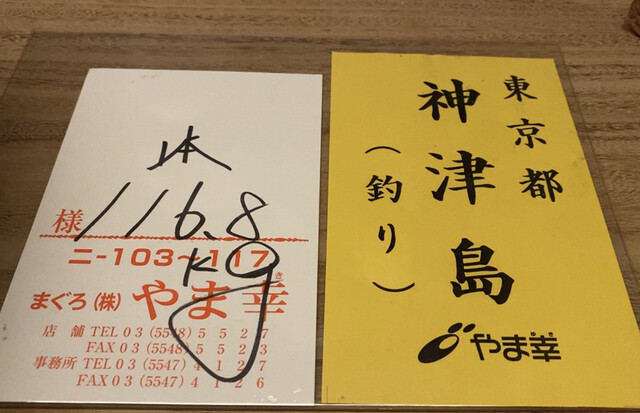 本
116.8
kg
様
ニ-103~117
まぐろ(株)やま幸
き
店舗 TEL 03 (5548) 5527
FAX 03 (5548) 5523
事務所 TEL 03 (5547) 4127
FAX 03 (5547) 4126
東京都
神津島
(釣り)
やま幸
ゆき